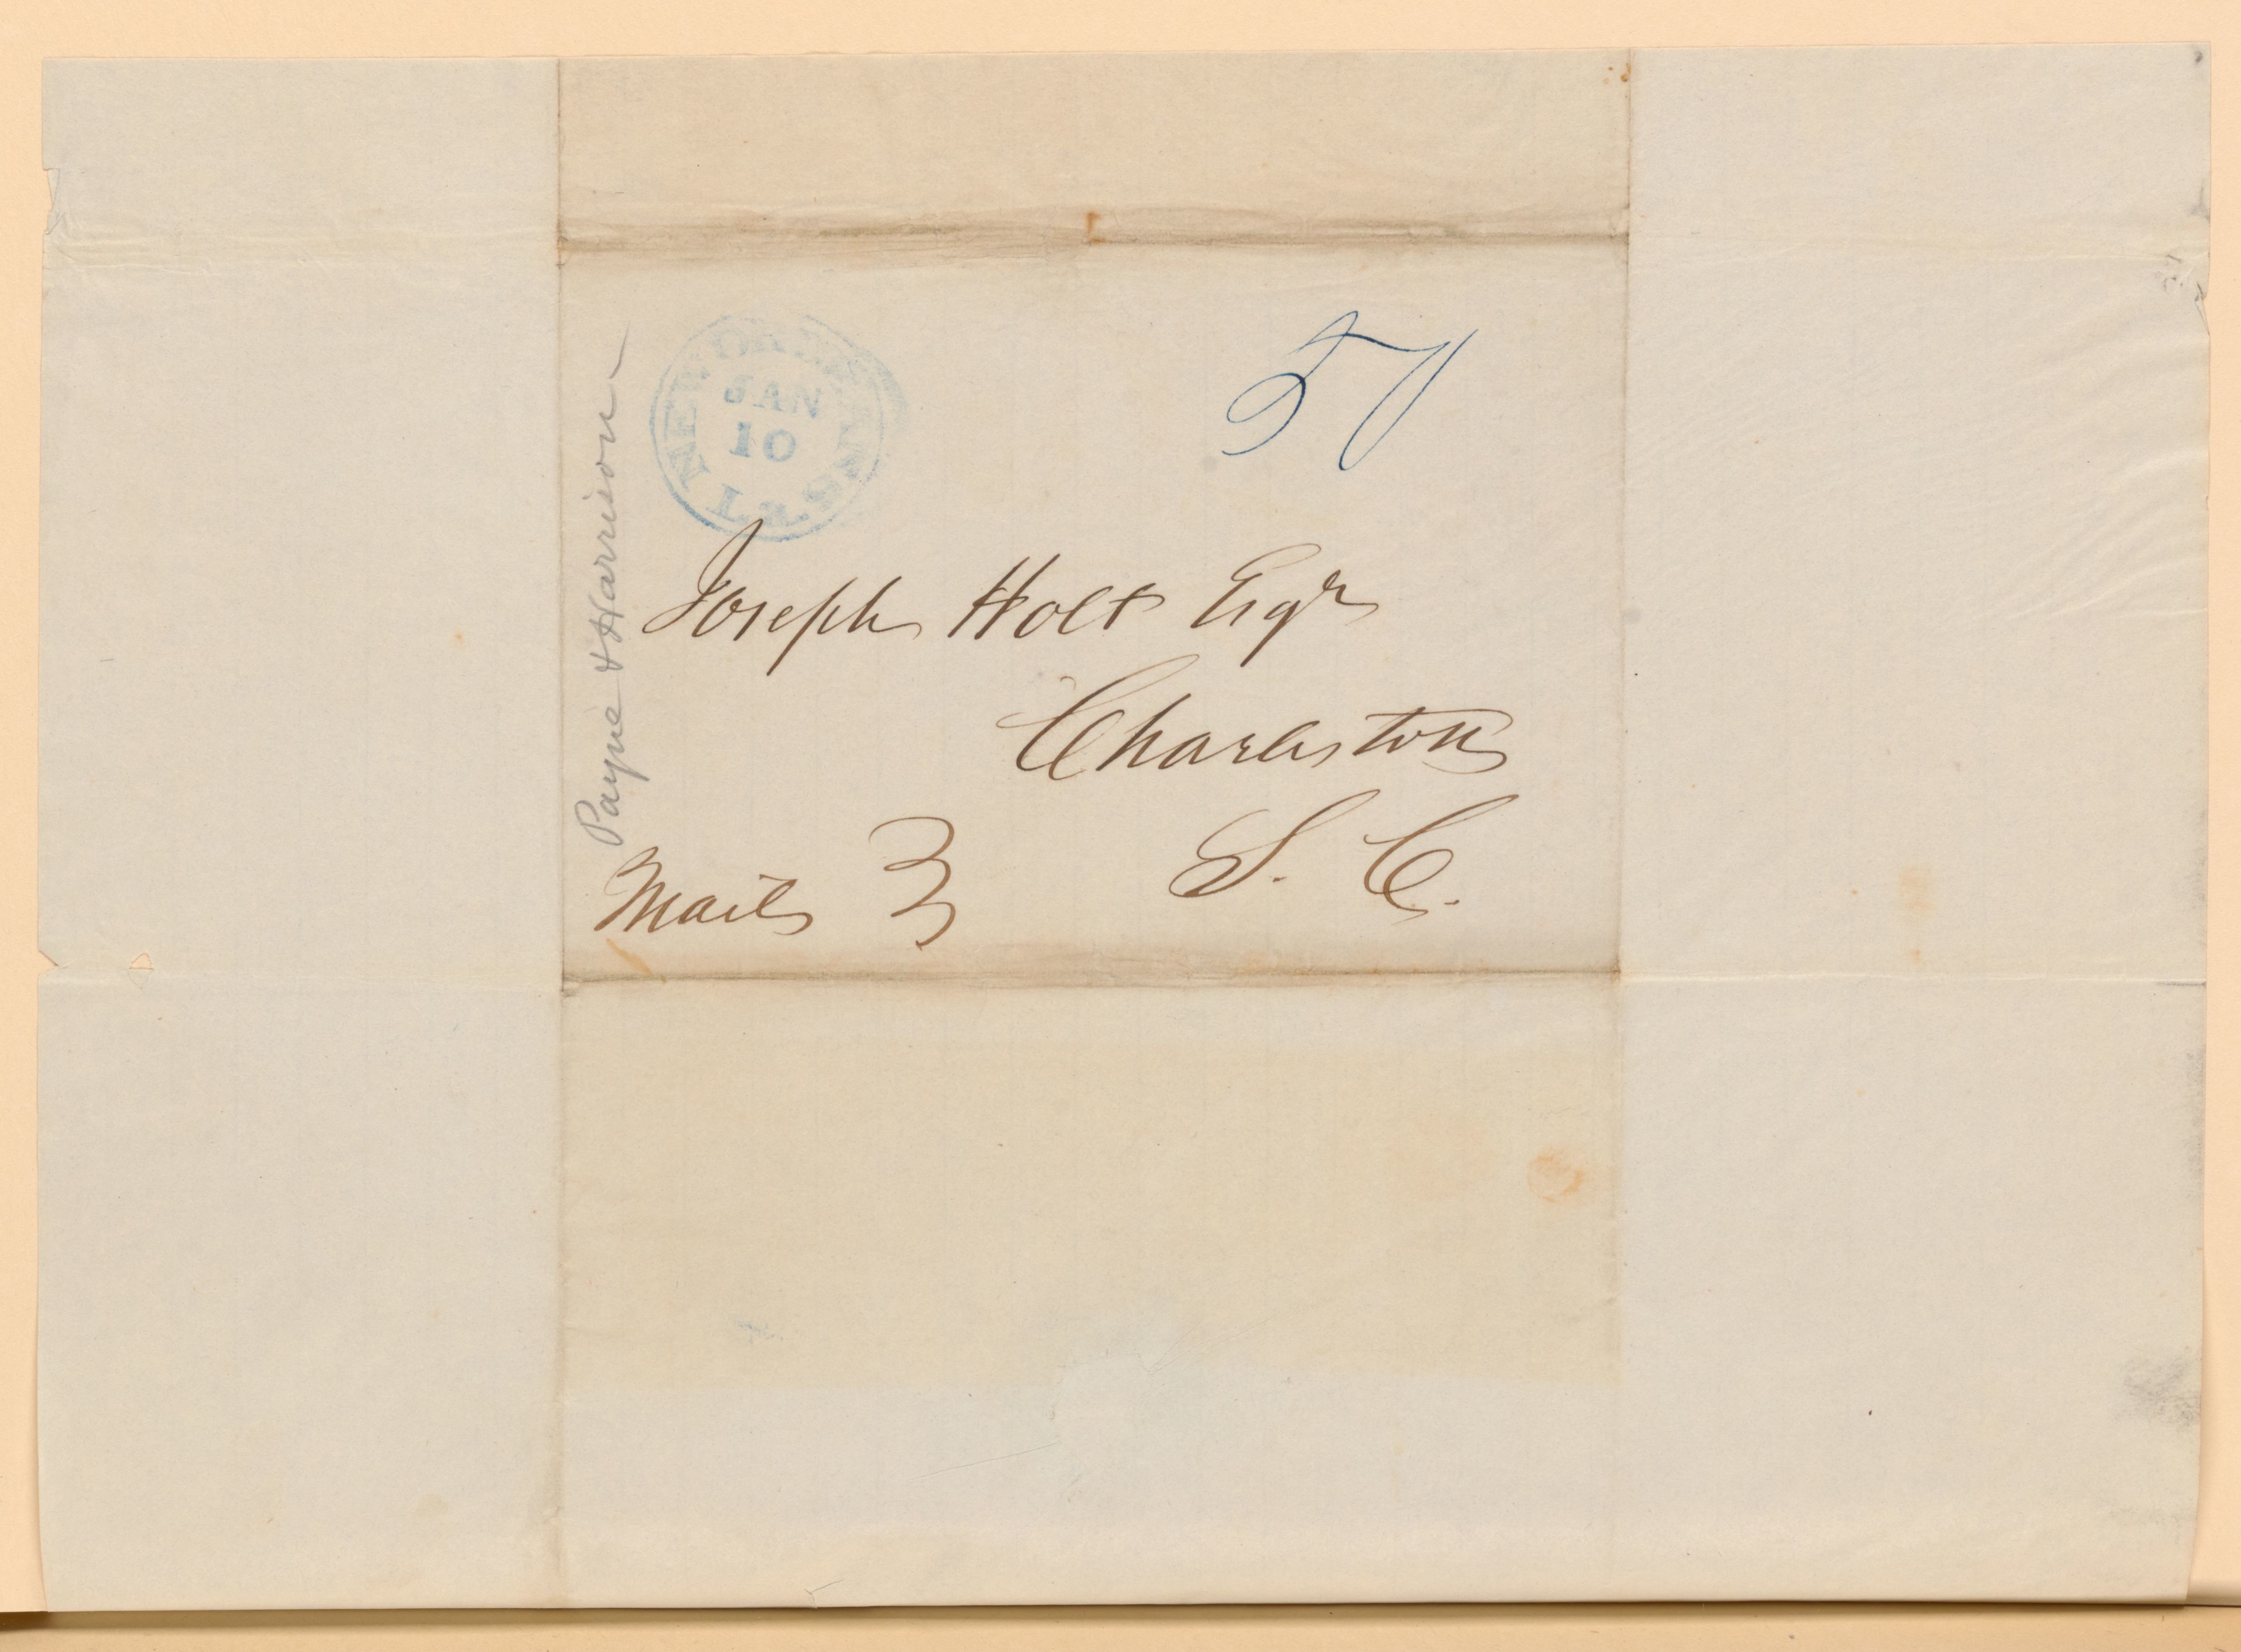 NEW ORLEANS
JAN
10
La.
50
Payne & Harrison
Joseph Holt Esqr
Charleston
S. C.
Mail 3